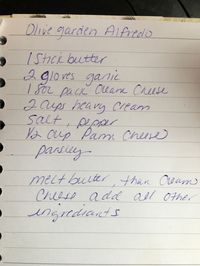 Olive garden Alfredo
1 Stick butter
2 gloves garlic
1 8oz pack Cream Cheese
2 Cups heavy Cream
Salt, pepper
1/2 cup Parm Cheese
parsley
melt butter, than Cream
Cheese add all other
ingrediants